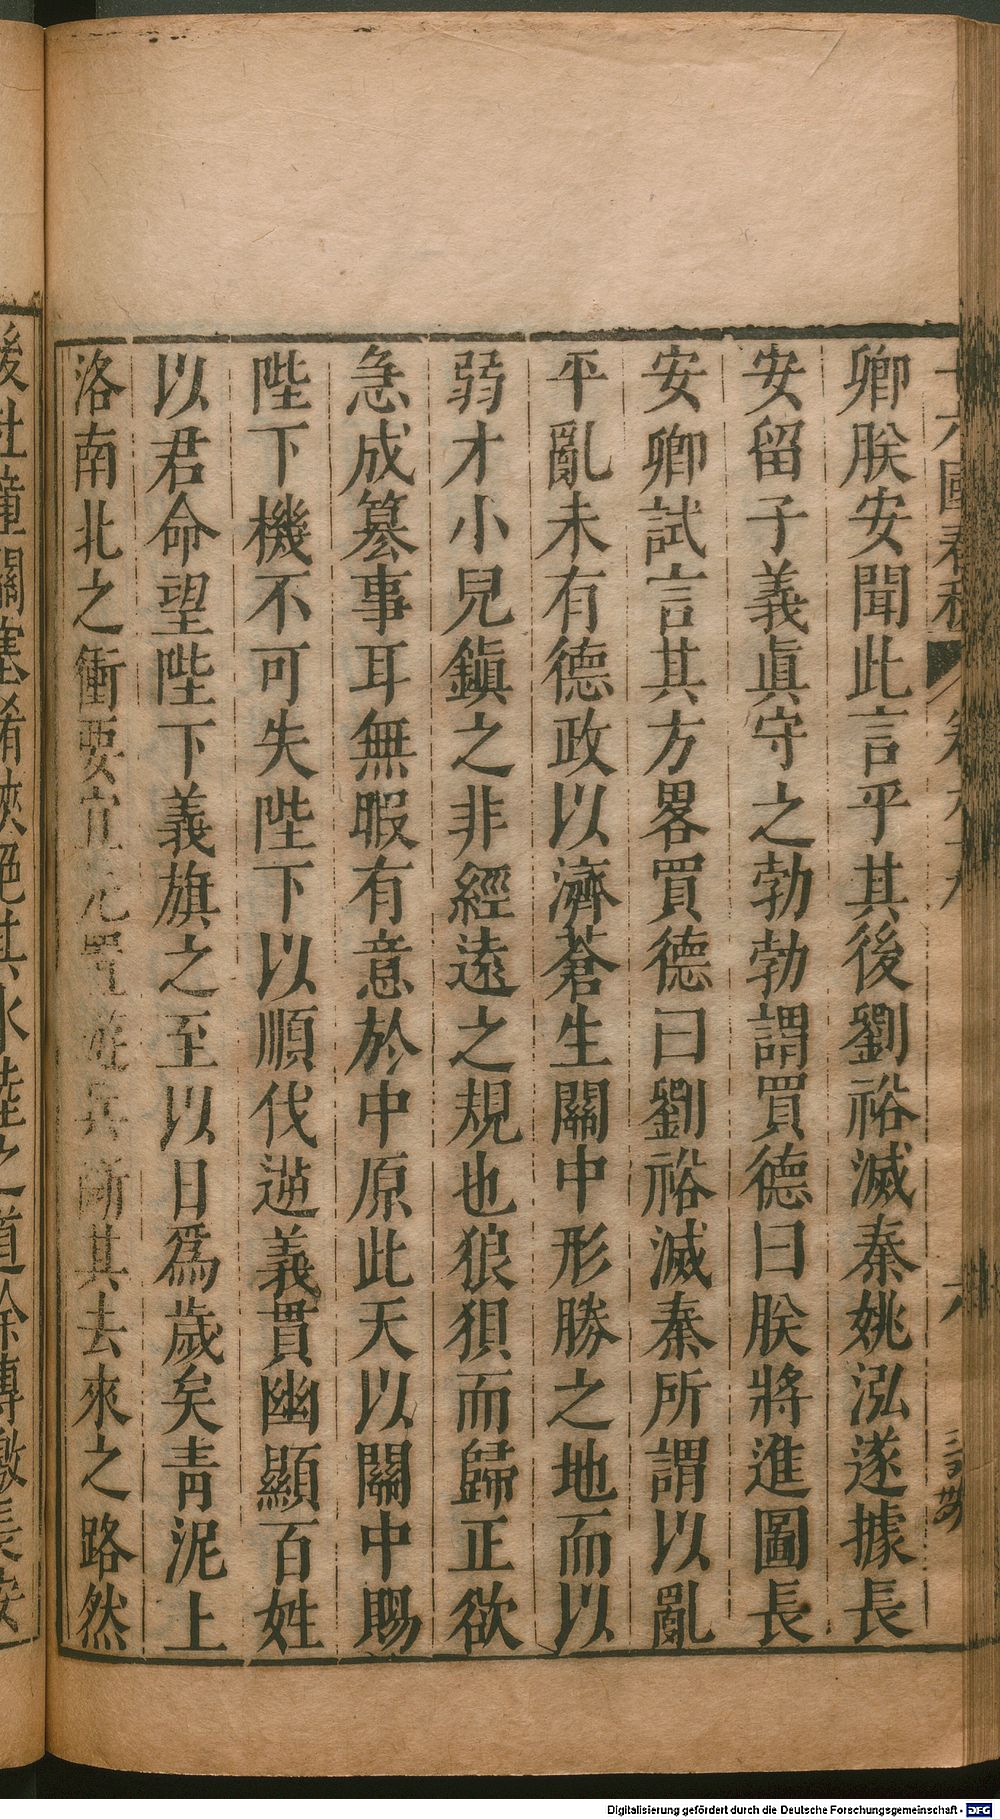 十六國春秋 卷六十六 六
卿朕安聞此言乎其後劉裕滅秦姚泓遂據長
安留子義眞守之勃勃謂買德曰朕將進圖長
安卿試言其方畧買德曰劉裕滅秦所謂以亂
平亂未有德政以濟蒼生關中形勝之地而以
弱才小兒鎭之非經遠之規也狼狽而歸正欲
急成篡事耳無暇有意於中原此天以關中賜
陛下機不可失陛下以順伐逆義貫幽顯百姓
以君命望陛下義旗之至以日爲歲矣青泥上
洛南北之衝要宜先置遊兵斷其去來之路然
後杜潼關塞崤陜絕其水陸之道餘傳檄長安
Digitalisierung gefördert durch die Deutsche Forschungsgemeinschaft - DFG